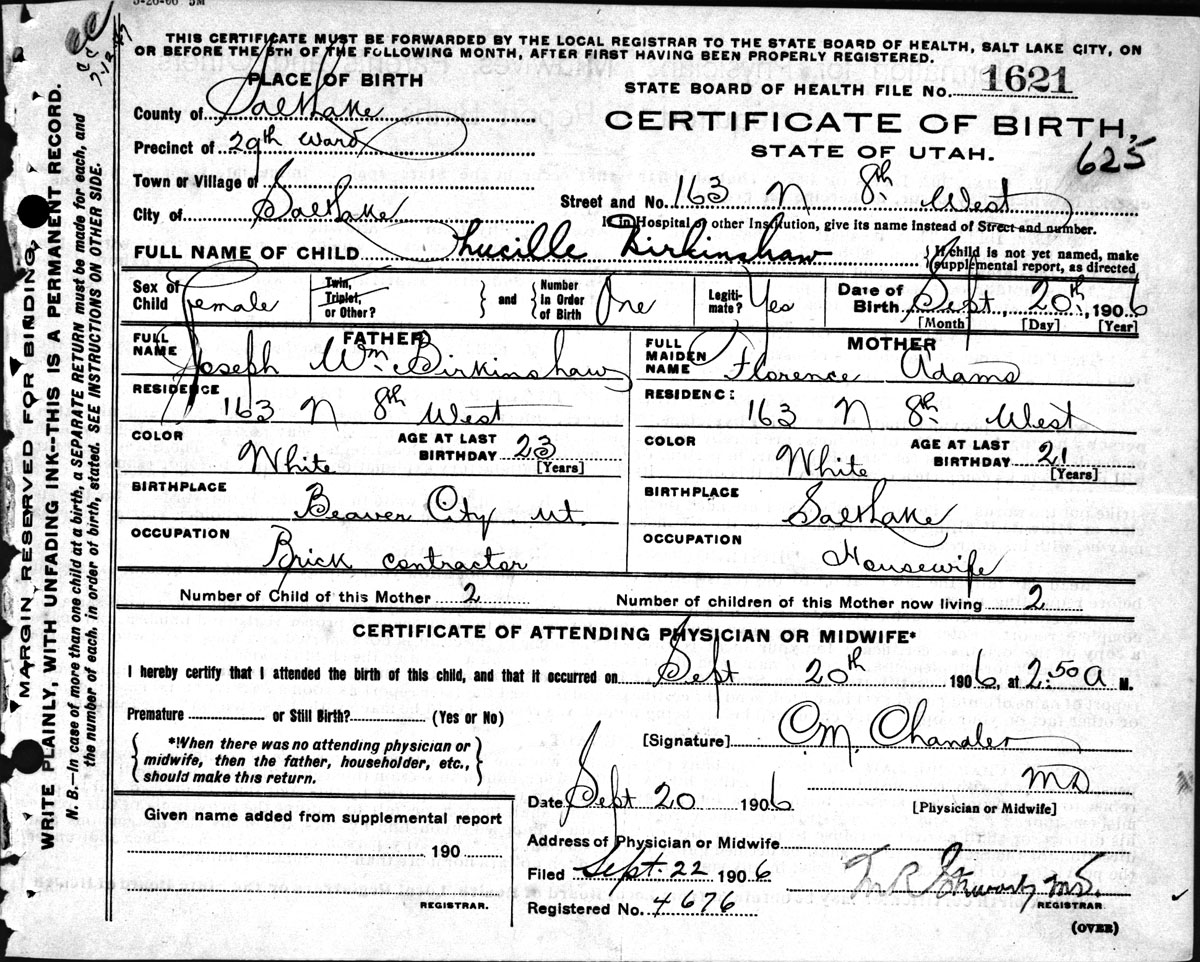 THIS CERTIFICATE MUST BE FORWARDED BY THE LOCAL REGISTRAR TO THE STATE BOARD OF HEALTH, SALT LAKE CITY, ON
OR BEFORE THE 5TH OF THE FOLLOWING MONTH, AFTER FIRST HAVING BEEN PROPERLY REGISTERED.
PLACE OF BIRTH
STATE BOARD OF HEALTH FILE NO. 1621
County of Salt Lake
CERTIFICATE OF BIRTH,
Precinct of 29th Ward
STATE OF UTAH.
625
Town or Village of
City of Salt Lake
Street and No. 163 N 8th West
If in Hospital or other Institution, give its name instead of Street and number.
FULL NAME OF CHILD Lucille Birkinshaw
{If child is not yet named, make supplemental report, as directed
Sex of Child Female
Twin, Triplet, or Other? } and { Number in Order of Birth One
Legitimate? Yes
Date of Birth Sept, 20th, 1906
[Month] [Day] [Year]
FATHER
FULL NAME Joseph Wm Birkinshaw
MOTHER
FULL MAIDEN NAME Florence Adams
RESIDENCE 163 N 8th West
RESIDENCE 163 N 8th West
COLOR White AGE AT LAST BIRTHDAY 23 [Years]
COLOR White AGE AT LAST BIRTHDAY 21 [Years]
BIRTHPLACE Beaver City Ut.
BIRTHPLACE Salt Lake
OCCUPATION Brick contractor
OCCUPATION Housewife
Number of Child of this Mother 2
Number of children of this Mother now living 2
CERTIFICATE OF ATTENDING PHYSICIAN OR MIDWIFE*
I hereby certify that I attended the birth of this child, and that it occurred on Sept 20th 1906, at 2:50 A M.
Premature or Still Birth? (Yes or No)
{*When there was no attending physician or
midwife, then the father, householder, etc.,
should make this return.}
[Signature] O.M. Chandler
MD
[Physician or Midwife]
Date Sept 20 1906
Given name added from supplemental report
190
REGISTRAR.
Address of Physician or Midwife
Filed Sept. 22 1906
T.R. Stewart, M.D.
REGISTRAR.
Registered No. 4676
(OVER)
MARGIN RESERVED FOR BINDING.
WRITE PLAINLY, WITH UNFADING INK--THIS IS A PERMANENT RECORD.
N. B.—In case of more than one child at a birth, a SEPARATE RETURN must be made for each, and
the number of each, in order of birth, stated. SEE INSTRUCTIONS ON OTHER SIDE.